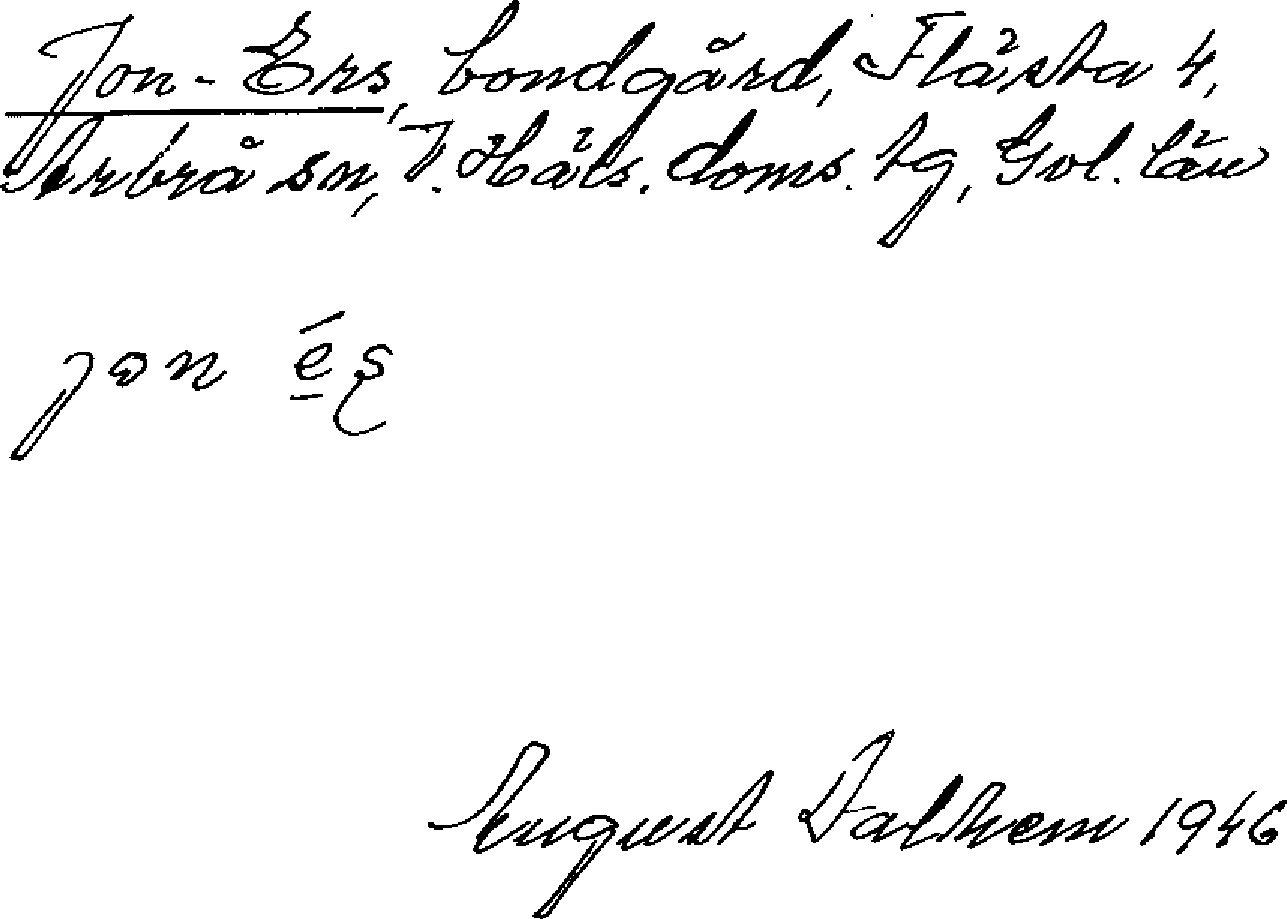 Jon-Ers, bondgård, Flästa 4,
Arbrå sn, V. Häls. doms. tg, Gvl. län
jon é̱ʂ
August Dalhem 1946